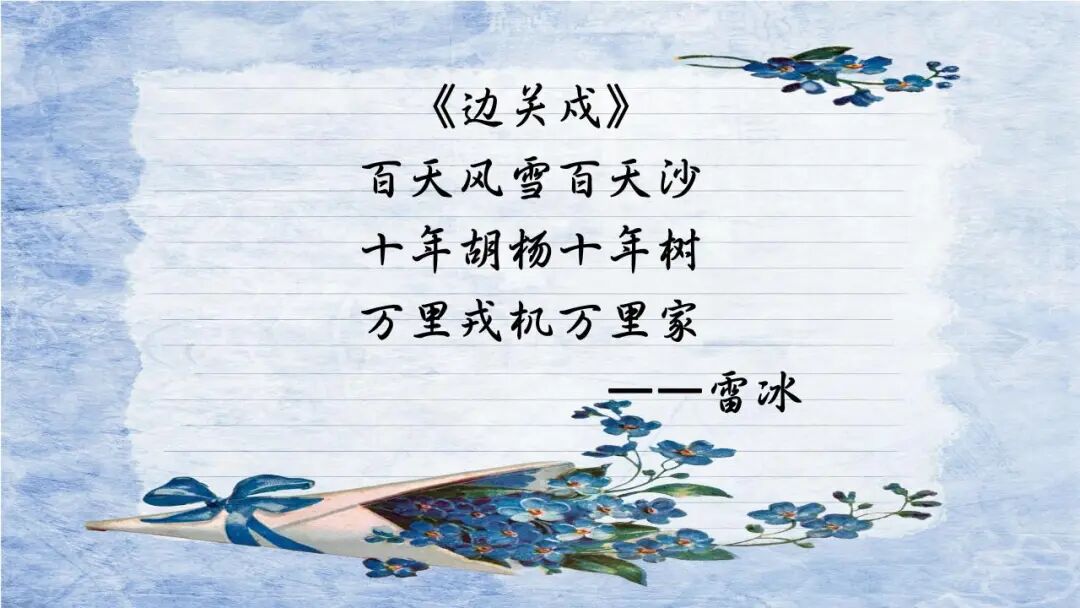 《边关戍》
百天风雪百天沙
十年胡杨十年树
万里戎机万里家
——雷冰